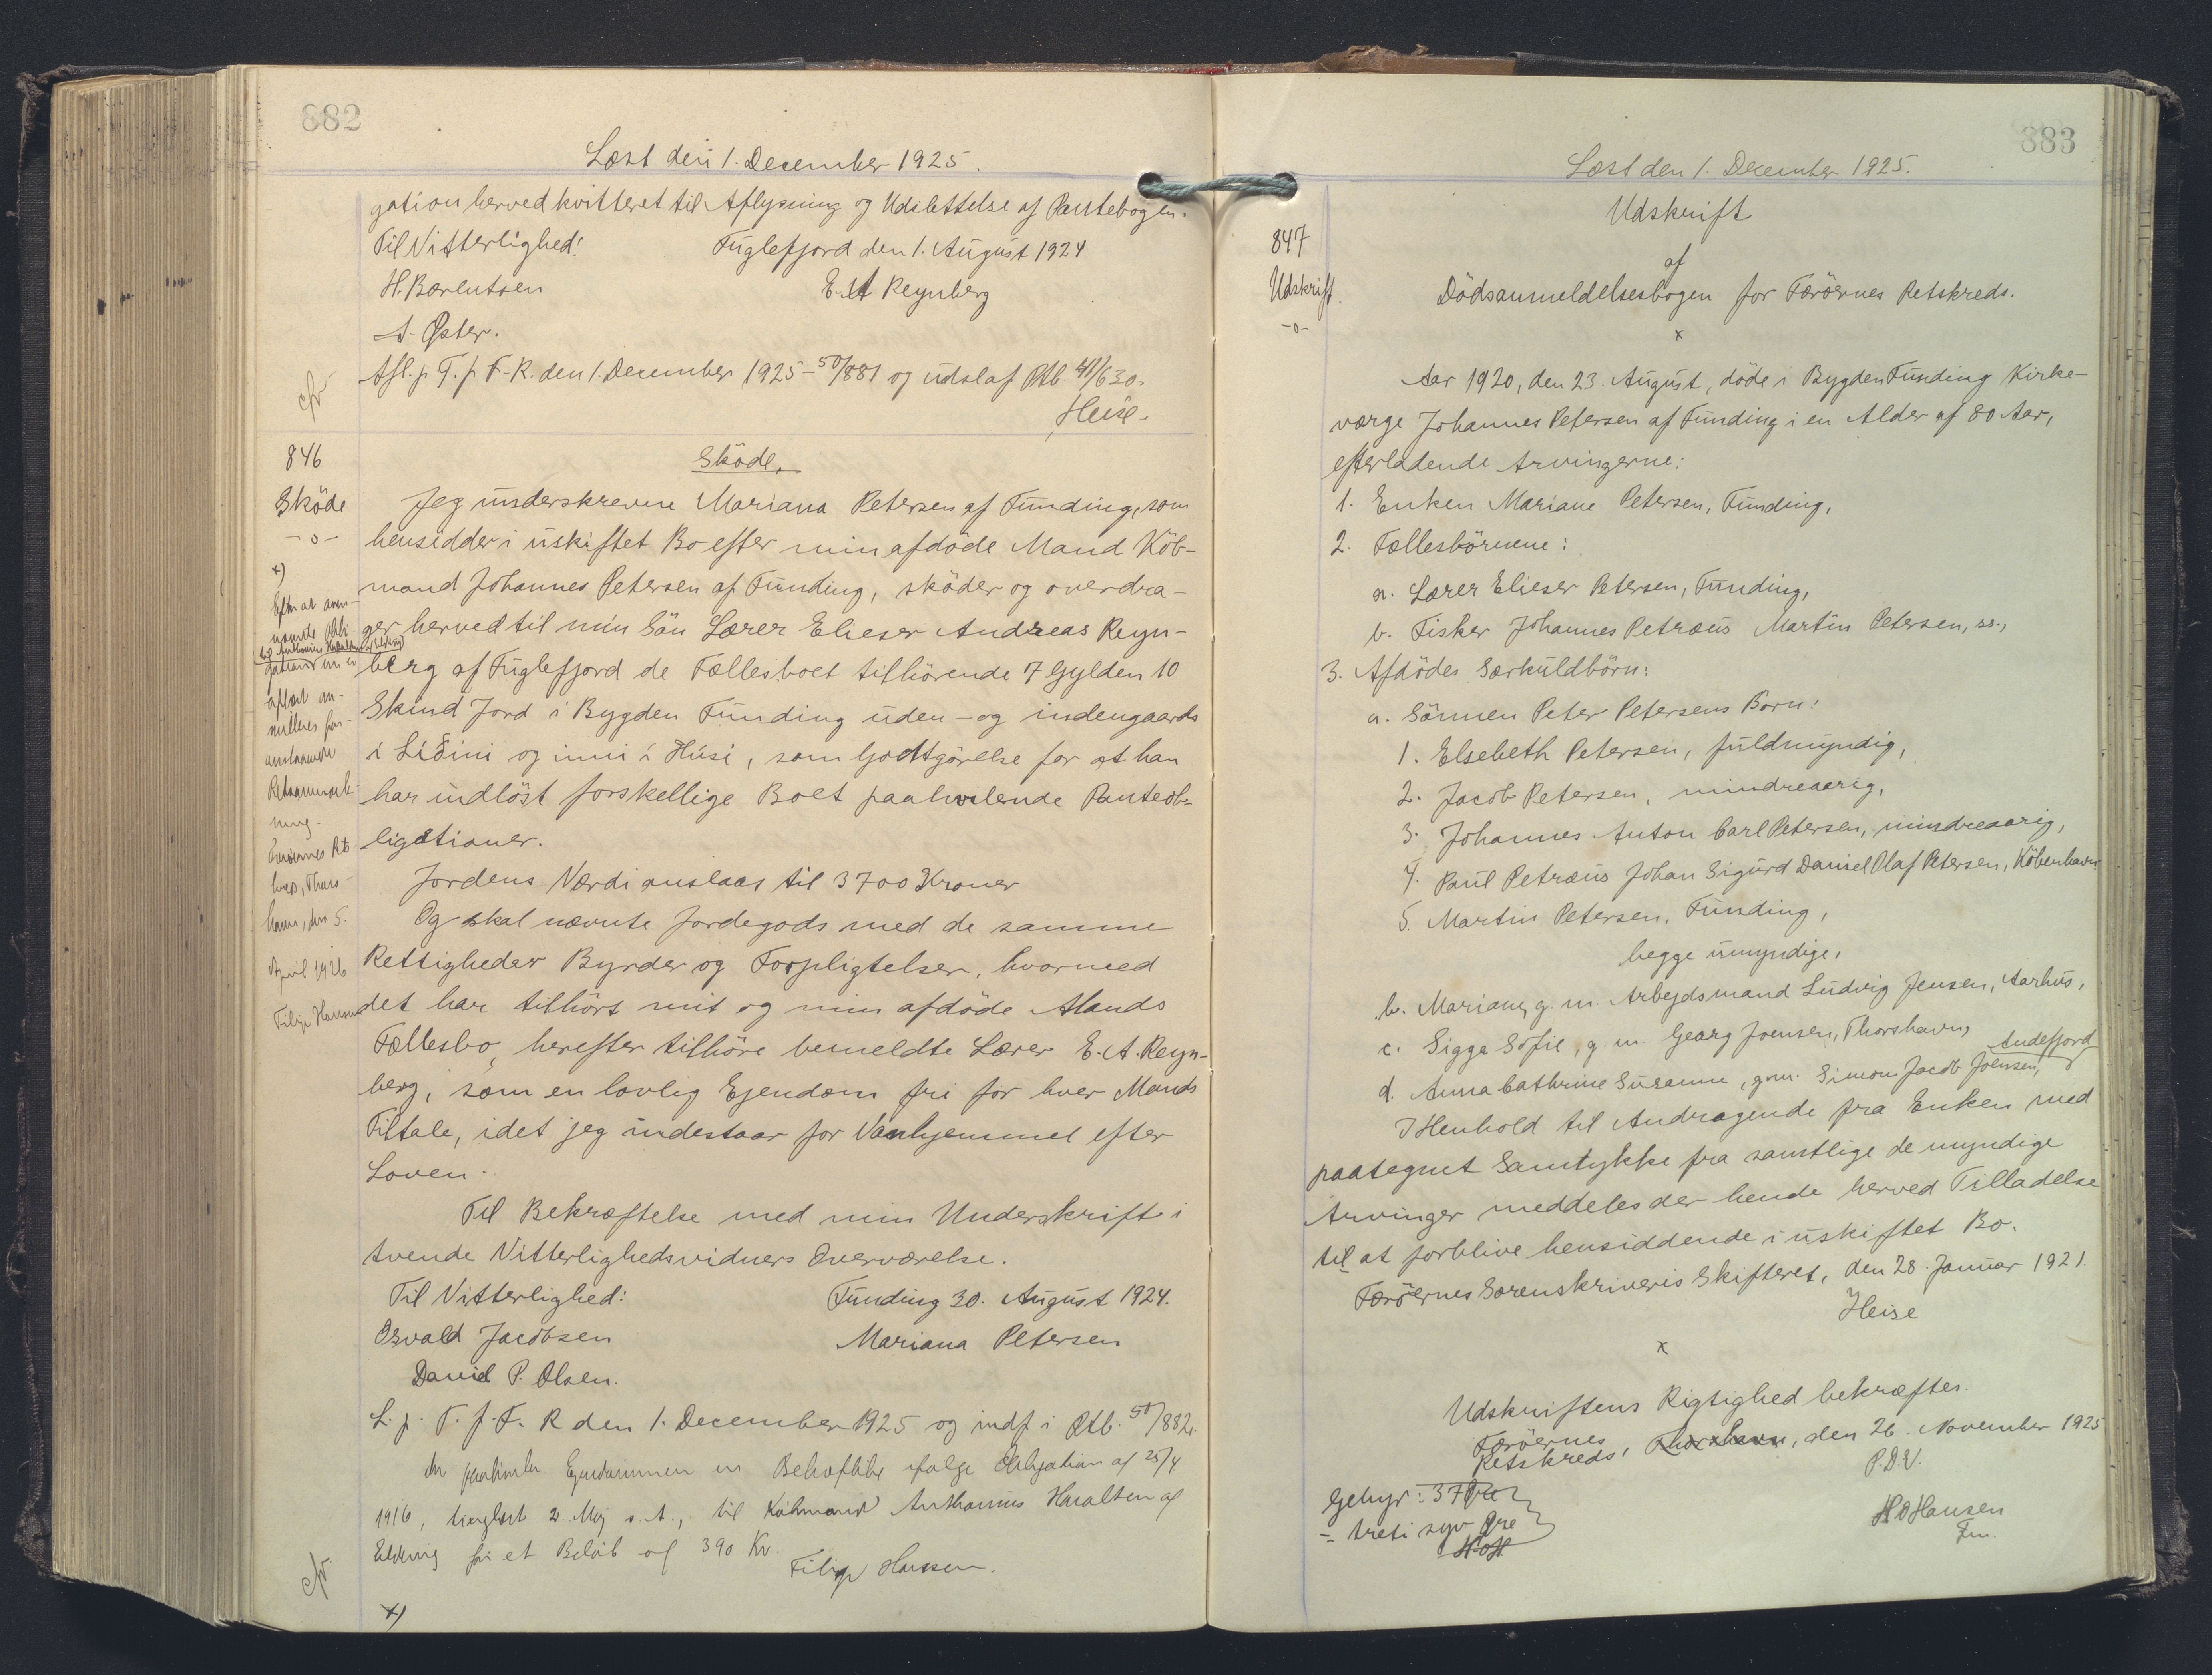 882
Læst den 1. December 1925.
gation herved kvitteret til Aflysning og Udslettelse af Pantebogen.
Til Vitterlighed! Fuglefjord den 1. August 1924
H. Bærentsen E. A Reynberg
A. Øster.
Afl. p. T. f. F. R. den 1. December 1925 - 50/881 og udsl af Ptb. 41/630.
cfr Heise.
846 Sköde.
Sköde
-o-
Jeg underskrevne Mariana Petersen af Funding, som
hensidder i uskiftet Bo efter min afdöde Mand Köb-
mand Johannes Petersen af Funding, sköder og overdra-
ger herved til min Sön Lærer Elieser Andreas Reyn-
berg af Fuglefjord de Fællesboet tilhörende 7 Gylden 10
Skind Jord i Bygden Funding uden- og indengaards
i Liðini og inni i Húsi, som Godtgörelse for at han
har indlöst forskellige Boet paahvilende Panteob-
ligationer.
Jordens Værdi anslaas til 3700 Kroner
Og skal nævnte Jordegods med de samme
Rettigheder Byrder og Forpligtelser, hvormed
det har tilhört mit og min afdöde Mands
Fællesbo, herefter tilhöre bemeldte Lærer E. A. Reyn-
berg, som en lovlig Ejendom fri for hver Mands
Tiltale, idet jeg indestaar for Vanhjemmel efter
Loven.
Til Bekræftelse med min Underskrift i
tvende Vitterlighedsvidners Overværelse.
Til Vitterlighed: Funding 30. August 1924.
Osvald Jacobsen Mariana Petersen
David P. Olsen.
L. p. T. f. F. R den 1. December 1925 og indf i Ptb. 50/882.
Der paahviler Ejendommen en Behæftelse ifølge Obligation af 25/4
1916, tinglæst 2. Maj s. A., til Købmand Anthonius Haraldsen af
Elduvig for et Beløb af 390 Kr.
Filip Hansen.
cfr
x)
x)
Efter at oven-
nævnte Obli-
gation nu er
aflæst an-
nulleres for-
anstaaende
Retsanmærk-
ning.
Færøernes Rets-
kreds, Thors-
havn, den 5.
April 1926
Filip Hansen
883
Læst den 1. December 1925.
847
Udskrift.
-o-
Udskrift
af
Dödsanmeldelsesbogen for Færöernes Retskreds.
x
Aar 1920, den 23. August, döde i Bygden Funding Kirke-
værge Johannes Petersen af Funding i en Alder af 80 Aar,
efterladende Arvingerne:
1. Enken Mariane Petersen, Funding,
2. Fællesbörnene:
a. Lærer Elieser Petersen, Funding,
b. Fisker Johannes Petræus Martin Petersen, ss.,
3. Afdödes Særkuldbörn:
a. Sönnen Peter Petersens Born:
1. Elsebeth Petersen, fuldmyndig,
2. Jacob Petersen, mindreaarig,
3. Johannes Anton Carl Petersen, mindreaarig,
4. Paul Petræus Johan Sigurd Daniel Olaf Petersen, Köbenhavn
5. Martin Petersen, Funding,
begge umyndige,
b. Mariane, g. m. Arbejdsmand Ludvig Jensen, Aarhus,
c. Sigga Sofie, g. m. Georg Joensen, Thorshavn,
d. Anna Cathrine Susanne, g. m. Simon Jacob Joensen, Andefjord
I Henhold til Andragende fra Enken med
paategnet Samtykke fra samtlige de myndige
Arvinger meddeles der hende herved Tilladelse
til at forblive hensiddende i uskiftet Bo.
Færöernes Sorenskriveris Skifteret, den 28. Januar 1921.
Heise
x
Udskriftens Rigtighed bekræftes.
Færöernes Retskreds, Thorshavn, den 26. November 1925
P.D.V.
Gebyr: 37 Øre
= treti syv Øre H O Hansen
HOH Fm.